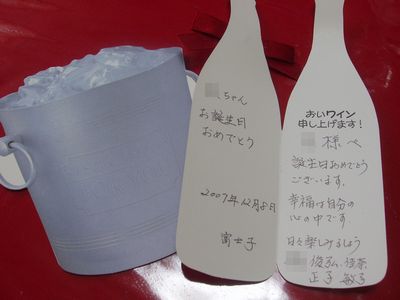 ちゃん
お誕生日
おめでとう
2007年12月8日
富士子
おいワイン
申し上げます!
様へ
誕生日おめでとう
ございます。
幸福は自分の
心の中です
日々楽しみましょう
俊弘、佳奈
正子 敏子